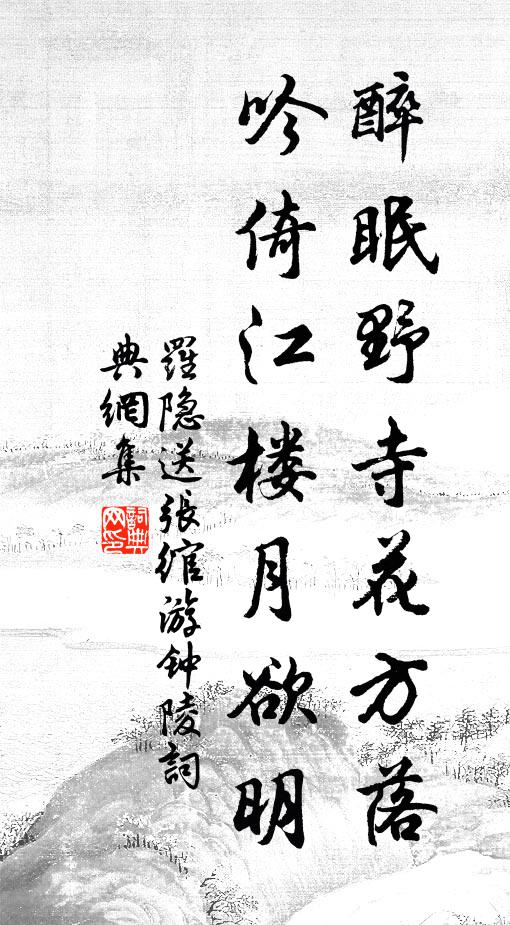 醉眠野寺花方落
吟倚江楼月欲明
羅隐送張綰游钟陵詞
典網集
詞典
网印